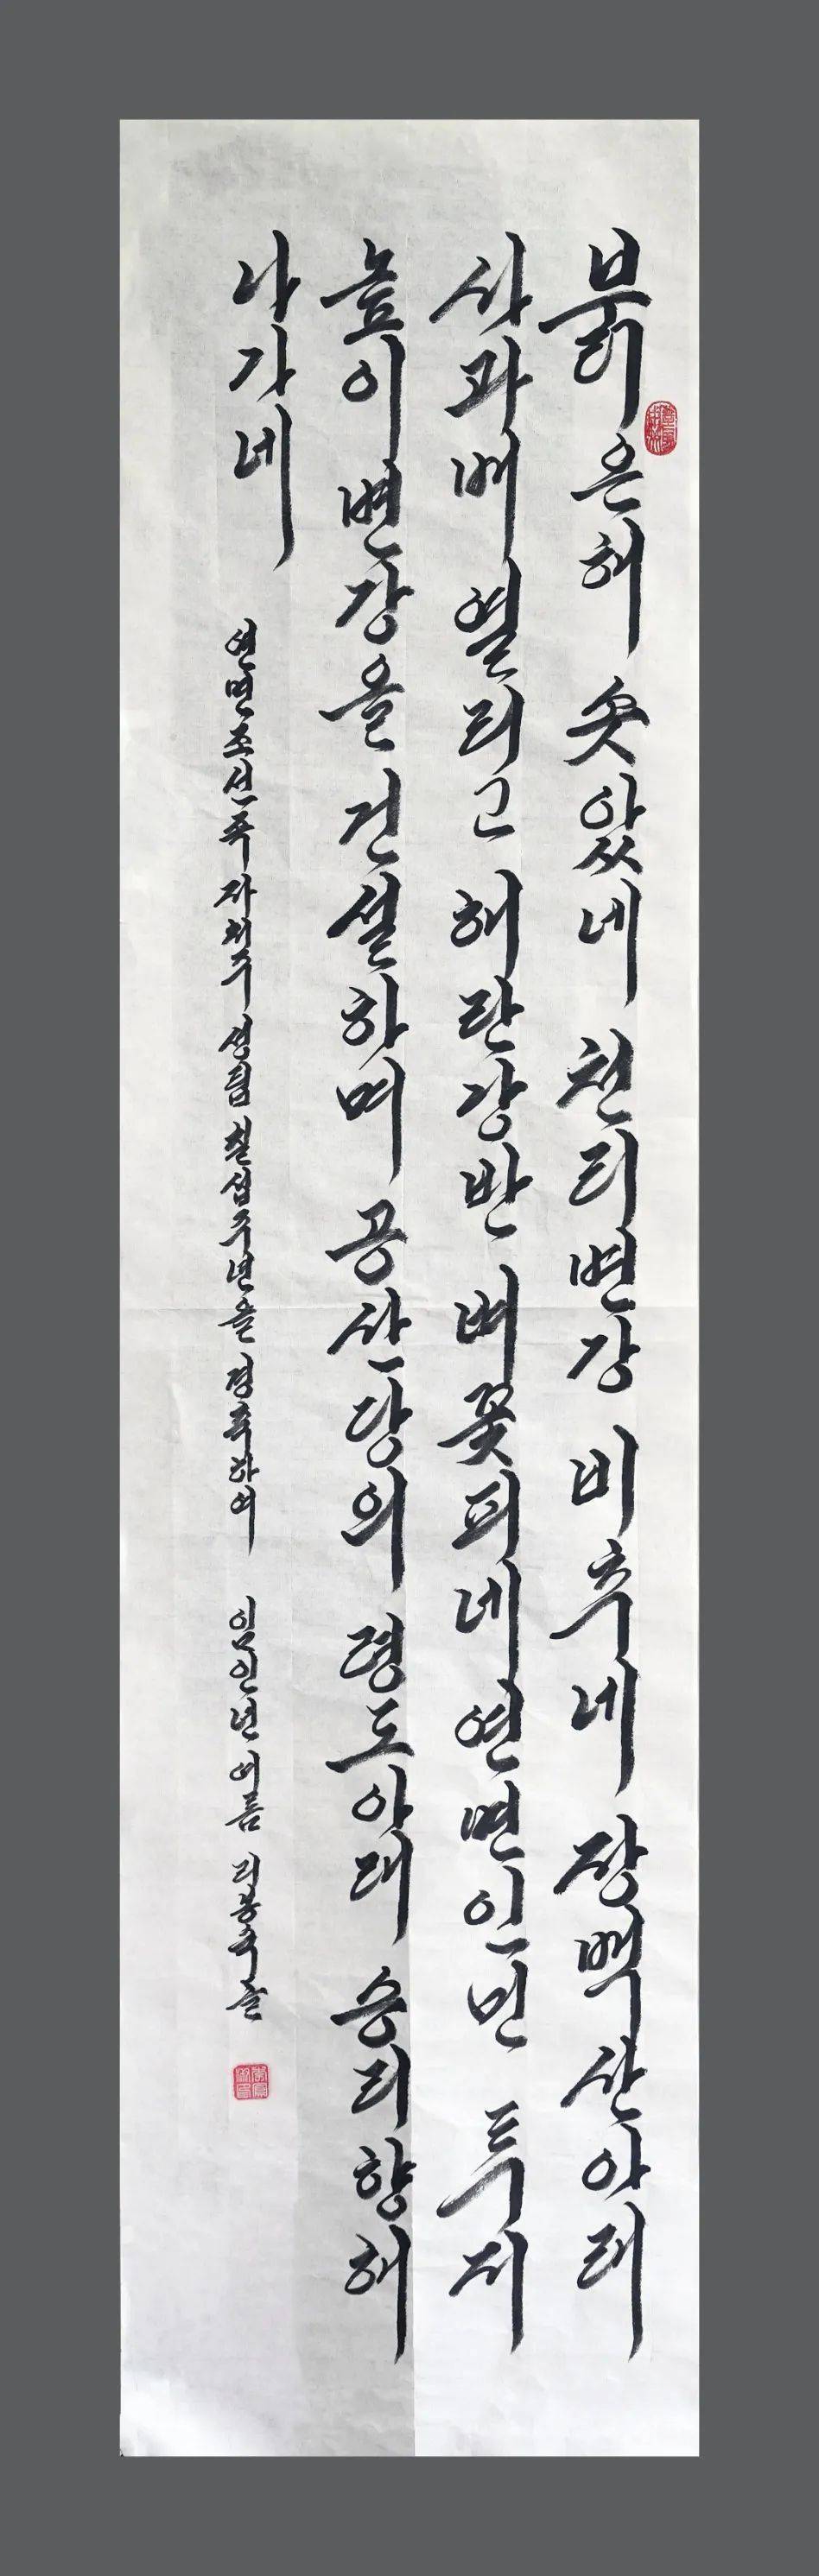 붉은해 솟았네 천리변강 비추네 장백산아래
사과배 열리고 해란강반 벼꽃피네 연변인민 투지
높이 변강을 건설하며 공산당의 령도아래 승리향해
나가네
연변조선족 자치주 성립 칠십주년을 경축하여 임인년 여름 리봉욱 씀